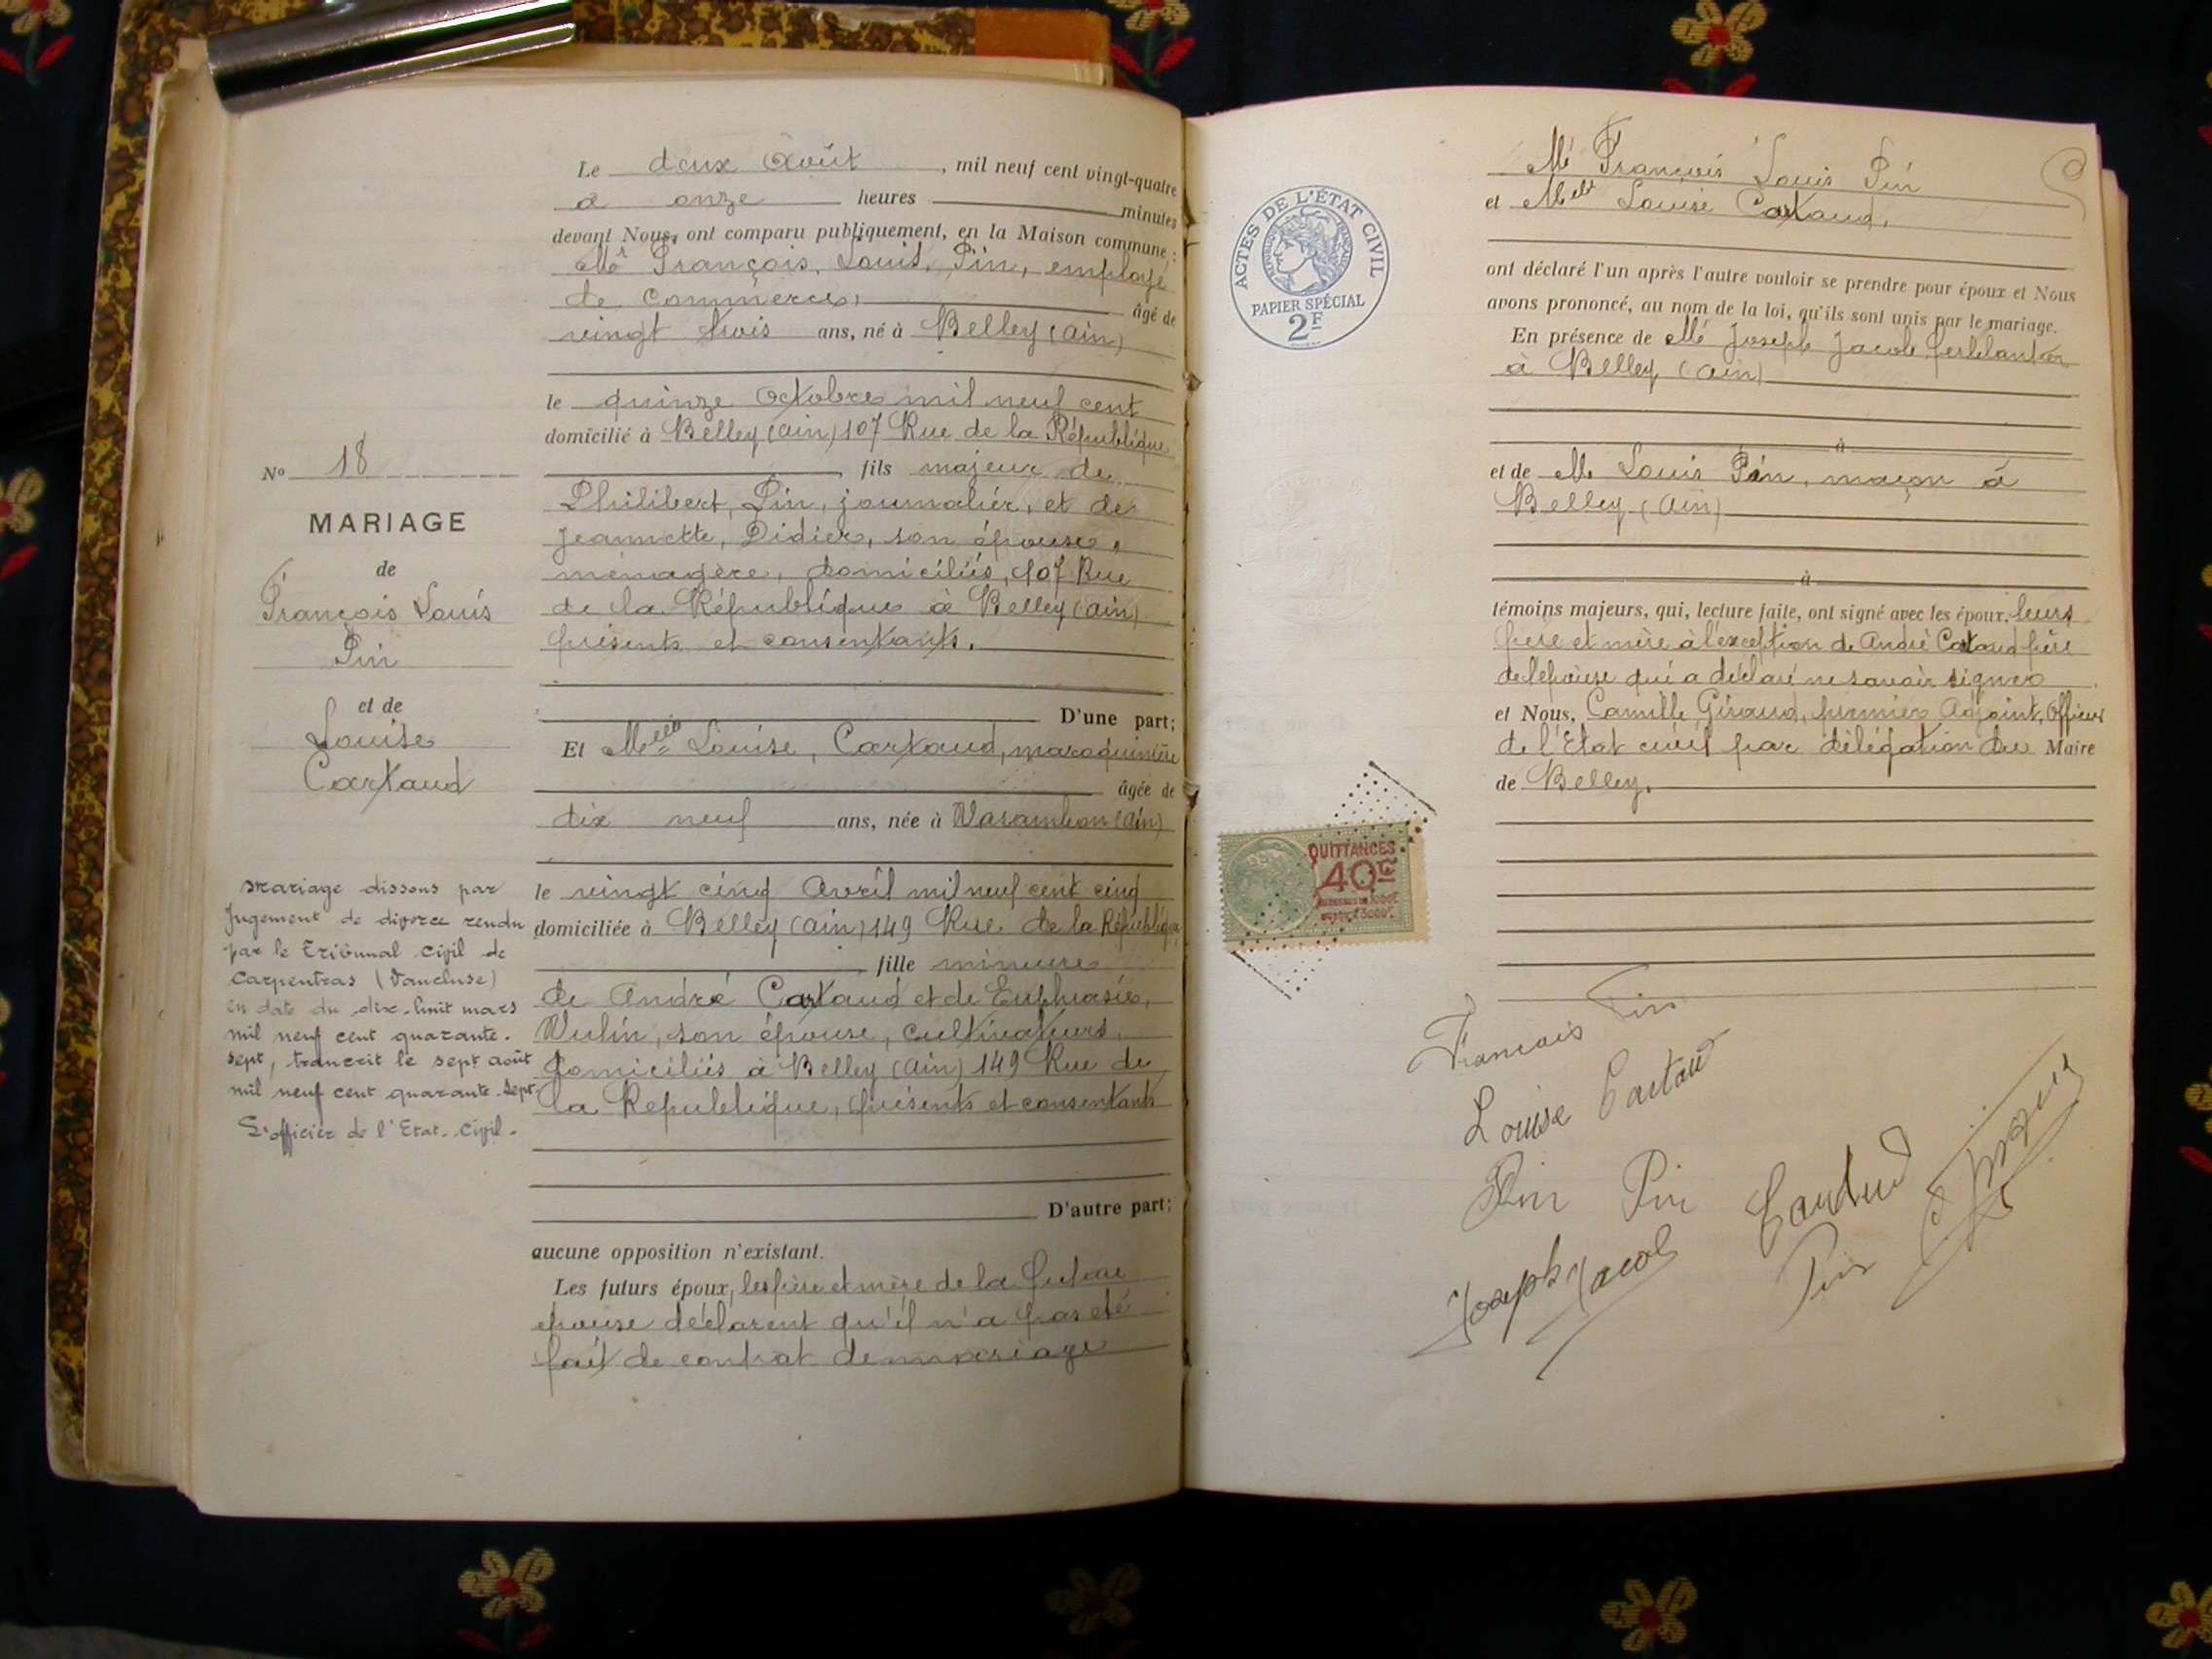 Le deux Août, mil neuf cent vingt-quatre
à onze heures minutes
devant Nous, ont comparu publiquement, en la Maison commune :
Mr François, Louis, Pin, employé
de commerce, âgé de
vingt trois ans, né à Belley (Ain)
le quinze Octobre mil neuf cent
domicilié à Belley (Ain) 107 Rue de la République
fils majeur de
Philibert, Pin, journalier, et de
Jeannette, Didier, son épouse,
ménagère, domiciliés, 107 Rue
de la République à Belley (Ain)
présents et consentants.
D'une part;
Et Melle Louise, Cartaud, maroquinière
âgée de
dix neuf ans, née à Varambon (Ain)
le vingt cinq Avril mil neuf cent cinq
domiciliée à Belley (Ain) 149 Rue de la République
fille mineure
de André Cartaud et de Euphrasie,
Vulin, son épouse, cultivateurs,
domiciliés à Belley (Ain) 149 Rue de
la République, présents et consentants
D'autre part;
aucune opposition n'existant.
Les futurs époux, les père et mère de la future
épouse déclarent qu'il n'a pas été
fait de contrat de mariage
No 18
MARIAGE
de
François Louis
Pin
et de
Louise
Cartaud
Mariage dissous par
Jugement de divorce rendu
par le Tribunal civil de
Carpentras (Vaucluse)
en date du dix-huit mars
mil neuf cent quarante-
sept, transcrit le sept août
mil neuf cent quarante-sept.
L'officier de l'Etat-Civil.
Mr François Louis Pin
et Melle Louise Cartaud,
ont déclaré l'un après l'autre vouloir se prendre pour époux et Nous
avons prononcé, au nom de la loi, qu'ils sont unis par le mariage.
En présence de Mr Joseph Jacob ferblantier
à Belley (Ain)
à
et de Mr Louis Pin, maçon à
Belley (Ain)
à
témoins majeurs, qui, lecture faite, ont signé avec les époux, leurs
père et mère à l'exception de André Cartaud père
de l'épouse qui a déclaré ne savoir signer
et Nous, Camille Giraud, premier Adjoint, Officier
de l'Etat civil par délégation du Maire
de Belley.
ACTES DE L'ÉTAT CIVIL
RÉPUBLIQUE FRANÇAISE
PAPIER SPÉCIAL
2F
QUITTANCES
40c
François Pin
Louise Cartaud
Pin Pin Cartaud
Joseph Jacob
Pin